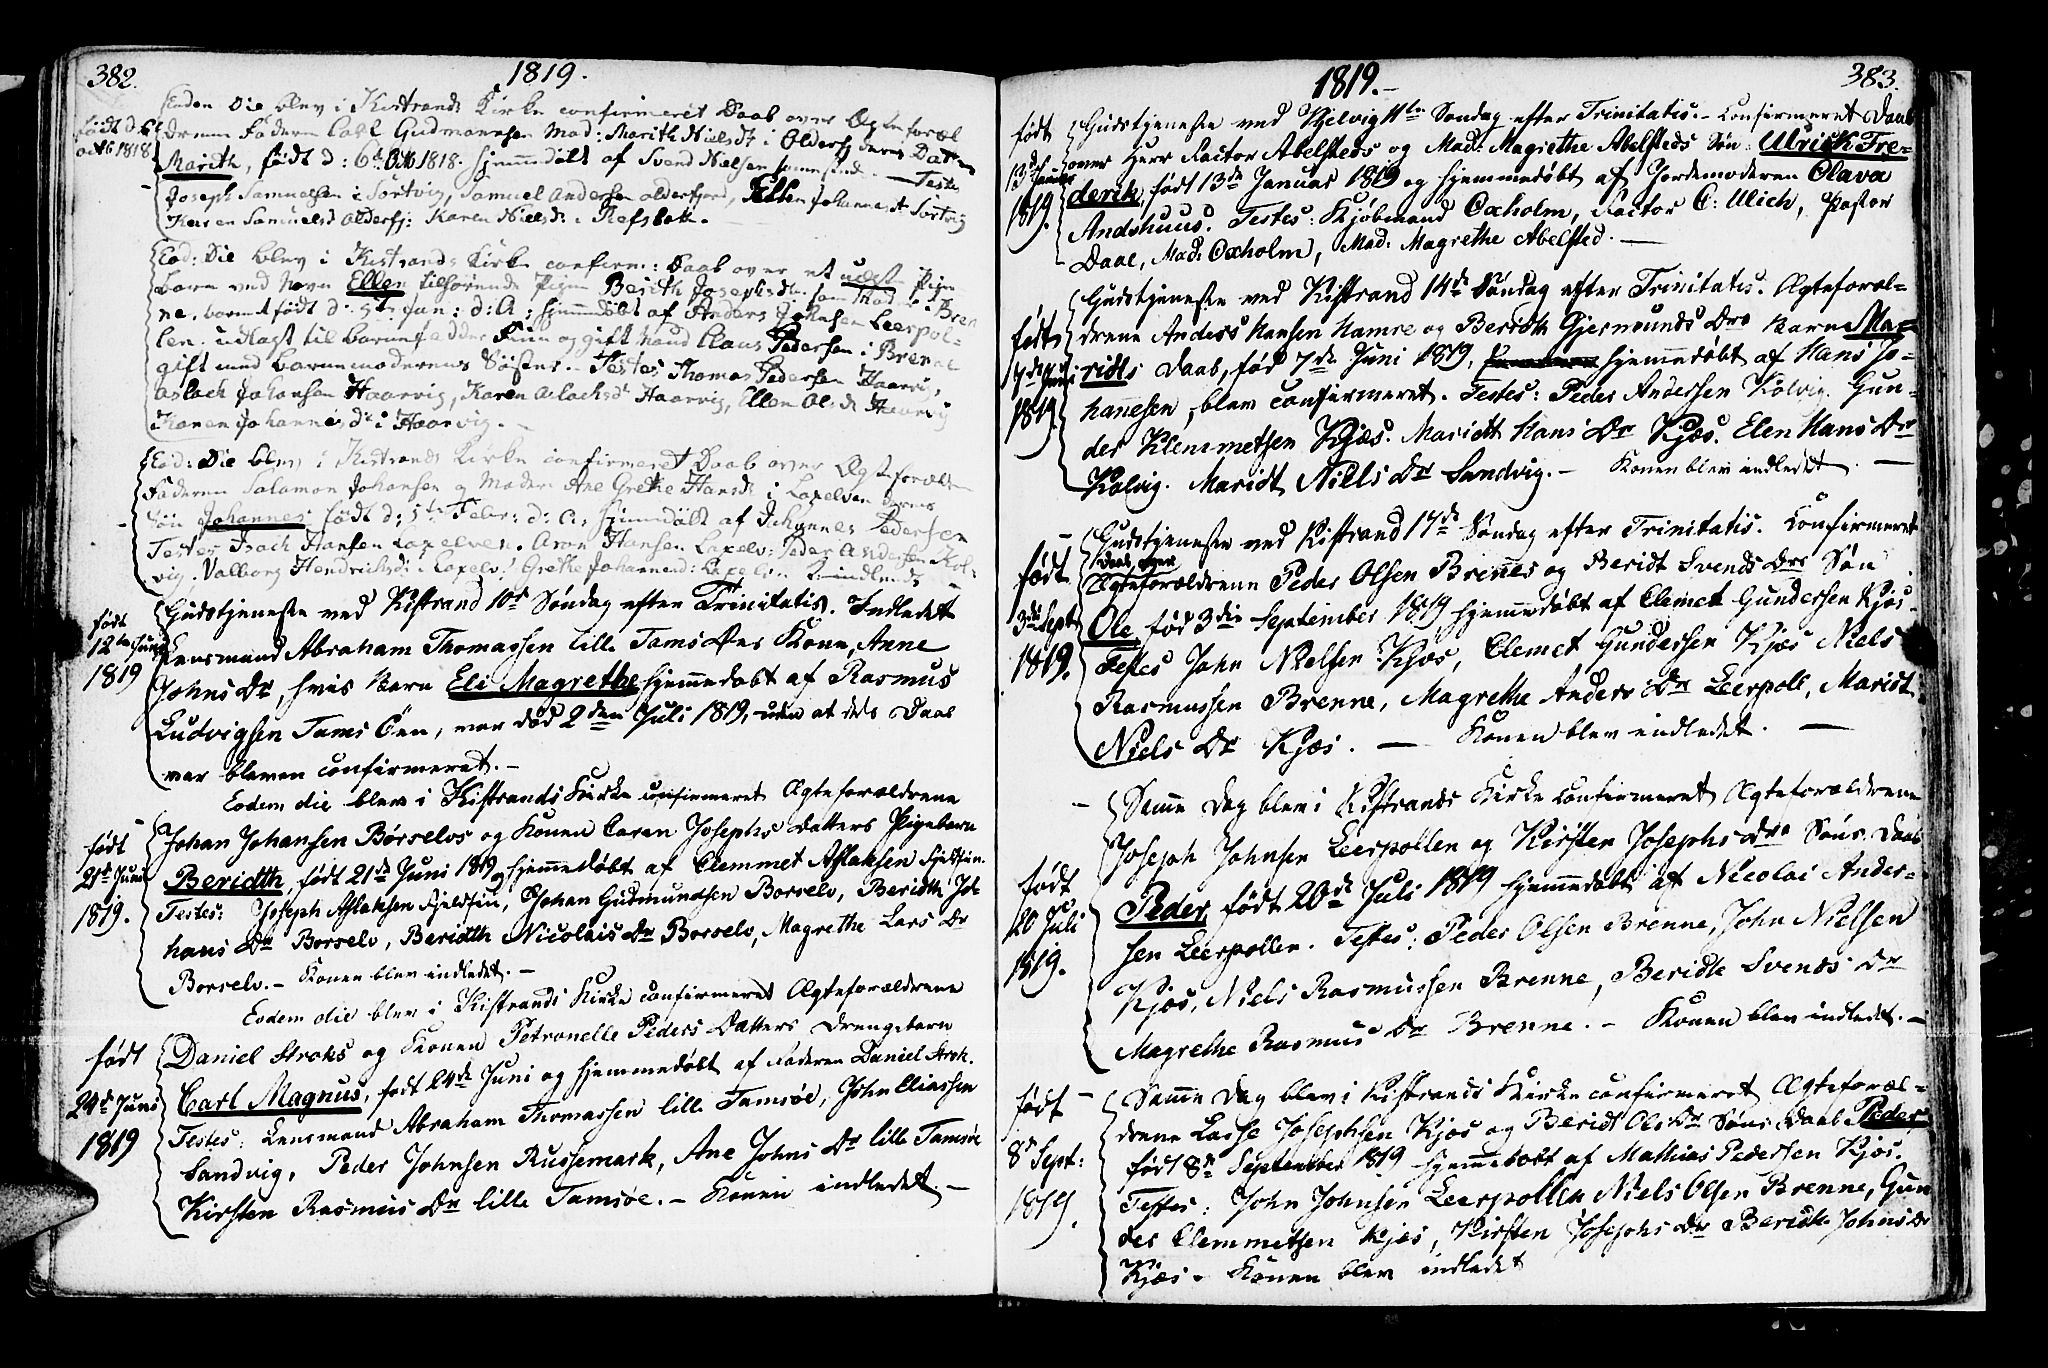 382.
1819.
Eodem Die blev i Kistrands Kirke confirmeret Daab over Ægteforæl
født d: 6t
octb 1818
drene Faderen Carl Gudmansen Mod: Marith Nielsdt i Olderfj: deres Datter
Marith, født d: 6t Oct 1818. hjemmdøbt af Svend Nielsen
Testes
Joseph Samuelsen i Sortvig, Samuel Andersen olderfjord, Johannes
Karen Samuelsd Olderfj: Karen Nielsdt i Refsbotn.
Eod: Die blev i Kistrands Kirke confirm: Daab over et uægte Pige
barn ved Navn Ellen tilhørende Pigen Berith Josephsdtr
ne, barnet født d: 5t Jan: d: A: hjemmdøbt af Anders Johnsen Leerpol-
len. udlagt til barnefader Finn og gift Mand Claus Pedersen i Brenne
gift med barnemoderens Søster. - Testes Thomas Pedersen Haarvig,
Aslach Johansen Haarvig, Karen Aslachsd Haarvig, Ellen Olsdt Haarvig
Karen Johannesdt i Haarvig. -
Eod: Die blev i Kistrands Kirke confirmeret Daab over Ægteforæld
Faderen Salamon Johansen og Moder Ane Grethe Hansdt i Laxelven deres
Søn Johannes født d: 5te Febr: d: A: hjemmdøbt af Johannes Pedersen
Testes Isach Hansen Laxelven. Aron Hansen Laxelv: Peder Andersen Kol-
vig. Valborg Hendrichsdt i Laxelv: Grethe Johannesd: Laxelven
født
12te Juni
1819
Gudstjeneste ved Kistrand 10de Søndag efter Trinitatis. Indledet
Lensmand Abraham Thomassen lille Tamsøes Kone, Anne
Johns Dr, hvis Barn Eli Magrethe hjemmedøbt af Rasmus
Ludvigsen Tams Øen, var død 2den Juli 1819, uden at dets Daab
var bleven confirmeret. -
Eodem die blev i Kistrands Kirke confirmeret Ægteforældrene
født
21de Juni
1819.
Johan Johansen Børselvs og Konen Caren Josephs Datters Pigebarn
Beridth, født 21de Juni 1819 og hjemmedøbt af Clemmet Aslaksen Fjeldfin.
Testes: Joseph Aslaksen Fjeldfin, Johan Gudmundsen Borselv, Beridth Jo-
hans Dr Borselv, Beridth Nicolais Dr Borselv, Magrethe Lars Dr
Borselv. - Konen blev indledet. -
Eodem die blev i Kistrands Kirke confirmeret Ægteforældrene
født
24de Juni
1819
Daniel Stroks og Konen Petronelle Peders Datters Drengebarn
Carl Magnus, født 24de Juni og hjemmedøbt af Faderen Daniel Strok.
Testes: Lensmand Abraham Thomassen lille Tamsøe, John Eliassen
Sandvig, Peder Johnsen Russemark, Ane Johns Dr lille Tamsøe
Kirsten Rasmus Dr lille Tamsøe. - Konen indledet -
1819. -
383.
født
13de Januar
1819.
Gudstjeneste ved Kjelvig 11te Søndag efter Trinitatis. - Confirmeret Daab
over Herr Factor Abelsteds og Mad: Magrethe Abelsteds Søn: Ulrick Fre-
derik, født 13de Januar 1819 og hjemmedøbt af Jordemoderen Olava
Andshuus. Testes: Kjøbmand Oxholm, Factor C: Ulich, Pastor
Daae, Mad: Oxholm, Mad: Magrethe Abelsted. -
født
7de Juni
1819.
Gudstjeneste ved Kistrand 14de Søndag efter Trinitatis. Ægteforæl-
drene Anders Hansen Hamre og Beridth Gjermunds Drs Barn Ma-
ridts Daab, fød 7de Juni 1819, hjemmedøbt af Hans Jo-
hannesen, blev confirmeret. Testes: Peder Andersen Kolvig. Gun-
der Klemmetsen Kjæs. Maridth Hans Dr Kjæs. Elen Hans Dr
Kolvig. Maridt Niels Dr Sandvig. - Konen blev indledet. -
født
3die Sept
1819.
Gudstjeneste ved Kistrand 17de Søndag efter Trinitatis. Confirmeret
Daab over
Ægteforældrene Peder Olsen Brennes og Beridt Svends Drs Søn
Ole, fød 3die September 1819 hjemmedøbt af Clemet Gundersen Kjæs.
Testes John Nielsen Kjæs, Clemet Gundersen Kjæs Niels
Rasmussen Brenne, Magrethe Anders Dr Leerpoll, Maridt
Niels Dr Kjæs. - Konen blev indledet. -
Samme Dag blev i Kistrands Kirke confirmeret Ægteforældrene
født
20 Juli
1819.
Joseph Johnsen Leerpollen og Kirsten Josephs Drs Søns Daab
Peder født 20de Juli 1819 hjemmedøbt af Nicolai Ander-
sen Leerpollen. Testes: Peder Olsen Brenne, John Nielsen
Kjæs, Niels Rasmussen Brenne, Beridte Svends Dr
Magrethe Rasmus Dr Brenne. - Konen blev indledet. -
født
8de Sept:
1819.
Samme Dag blev i Kistrands Kirke confirmeret Ægteforæl-
drene Lasse Josephsen Kjæs og Beridt Ols Dr Søns Daab Peder
født 8de September 1819 hjemmedøbt af Mathias Pedersen Kjæs.
Testes: John Johnsen Leerpollen Niels Olsen Brenne, Gun
der Clemmetsen Kjæs, Kirsten Josephs Dr Beridte Johns Dr
Kjæs. Konen blev indledet